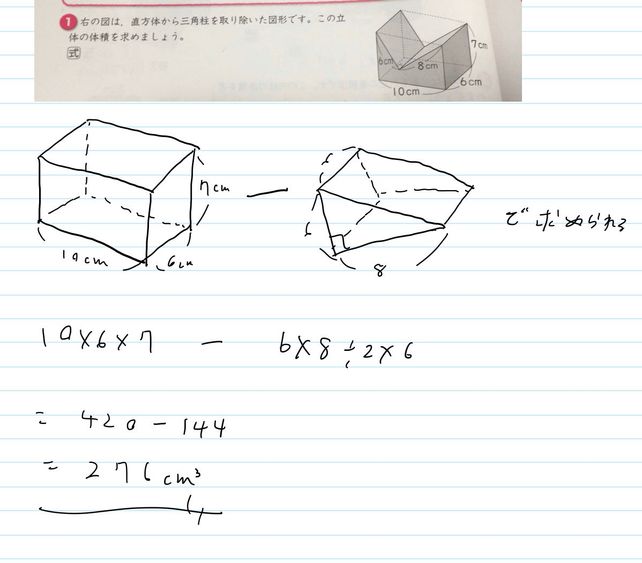 1 右の図は、直方体から三角柱を取り除いた図形です。この立
体の体積を求めましょう。
式
6cm
8cm
7cm
10cm
6cm
7cm
10cm
6cm
6
6
8
でもとめられる
10×6×7 - 6×8÷2×6
= 420 - 144
= 276 cm³